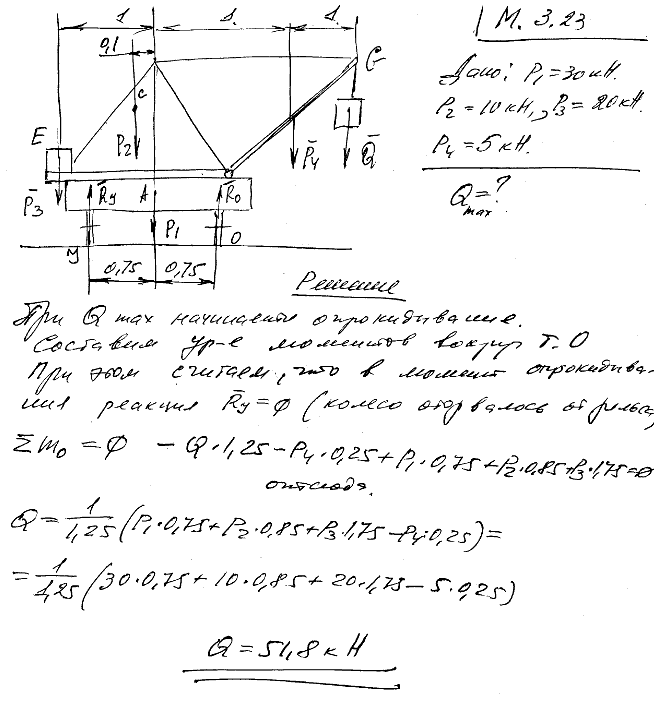 1 1 1.
0,1
М. 3.23
Дано: P₁=30кН.
P₂=10кН., P₃=20кН.
P₄=5кН.
Q max=?
E C G
P̄₂ P̄₄ Q̄
P̄₃ R̄у A R̄о
P₁ O
У
0,75 0,75
Решение
При Q max начинается опрокидывание.
Составим ур-е моментов вокруг т. O
При этом считаем, что в момент опрокидыва-
ния реакция R̄у=0 (колесо оторвалось от рельса)
Σmо=0 -Q·1,25-P₄·0,25+P₁·0,75+P₂·0,85+P₃·1,75=0
отсюда.
Q=1/1,25(P₁·0,75+P₂·0,85+P₃·1,75-P₄·0,25)=
=1/1,25(30·0,75+10·0,85+20·1,75-5·0,25)
Q=51,8кН